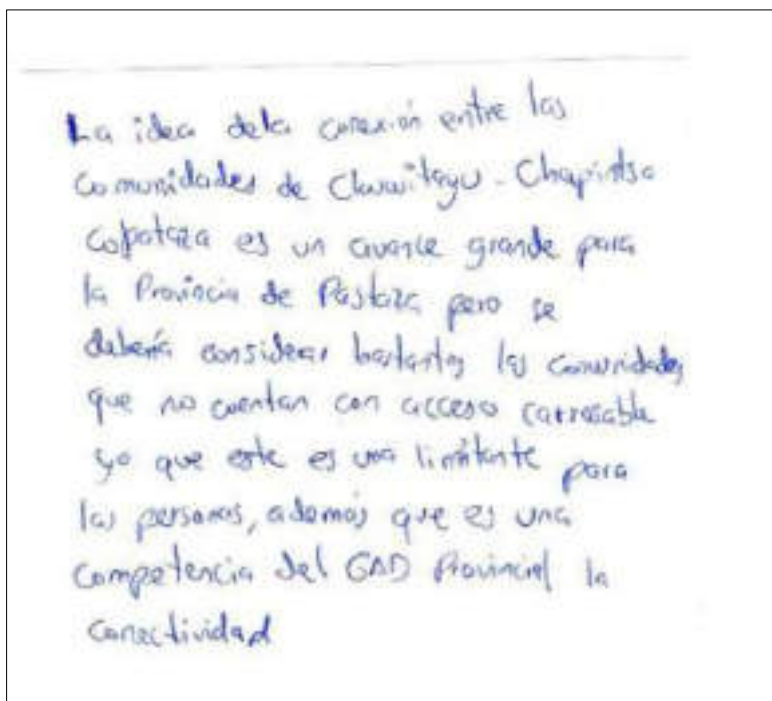 La idea dela conexión entre las
Comunidades de Chuwitayu - Chapintsa
Copataza es un avance grande para
la Provincia de Pastaza pero se
debería considerar bastantes las comunidades
que no cuentan con acceso carrosable
ya que este es una limitante para
las personas, además que es una
competencia del GAD Provincial la
conectividad